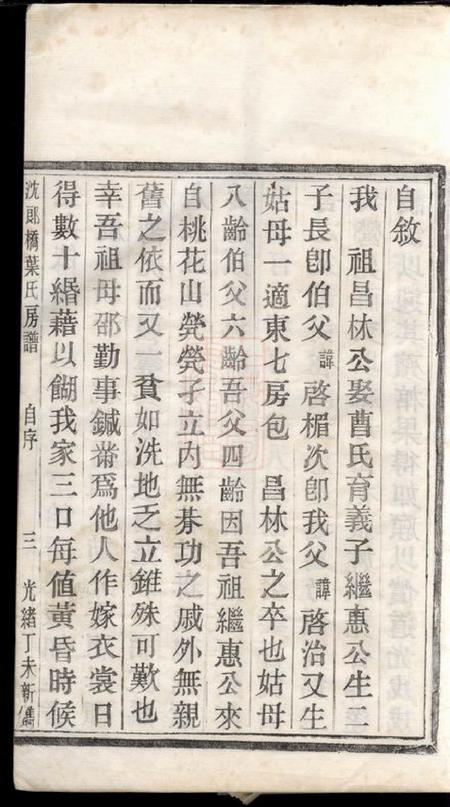 自敘
我　祖昌林公娶曹氏育義子繼惠公生二
子長卽伯父諱啓楣次卽我父諱啓治又生
姑母一適東七房包　昌林公之卒也姑母
八齡伯父六齡吾父四齡因吾祖繼惠公來
自桃花山煢煢孑立內無朞功之戚外無親
舊之依而又一貧如洗地乏立錐殊可歎也
幸吾祖母邵勤事鍼黹爲他人作嫁衣裳日
得數十緡藉以餬我家三口每值黃昏時候
沈郎橋葉氏房譜　自序　三　光緒丁未新儁